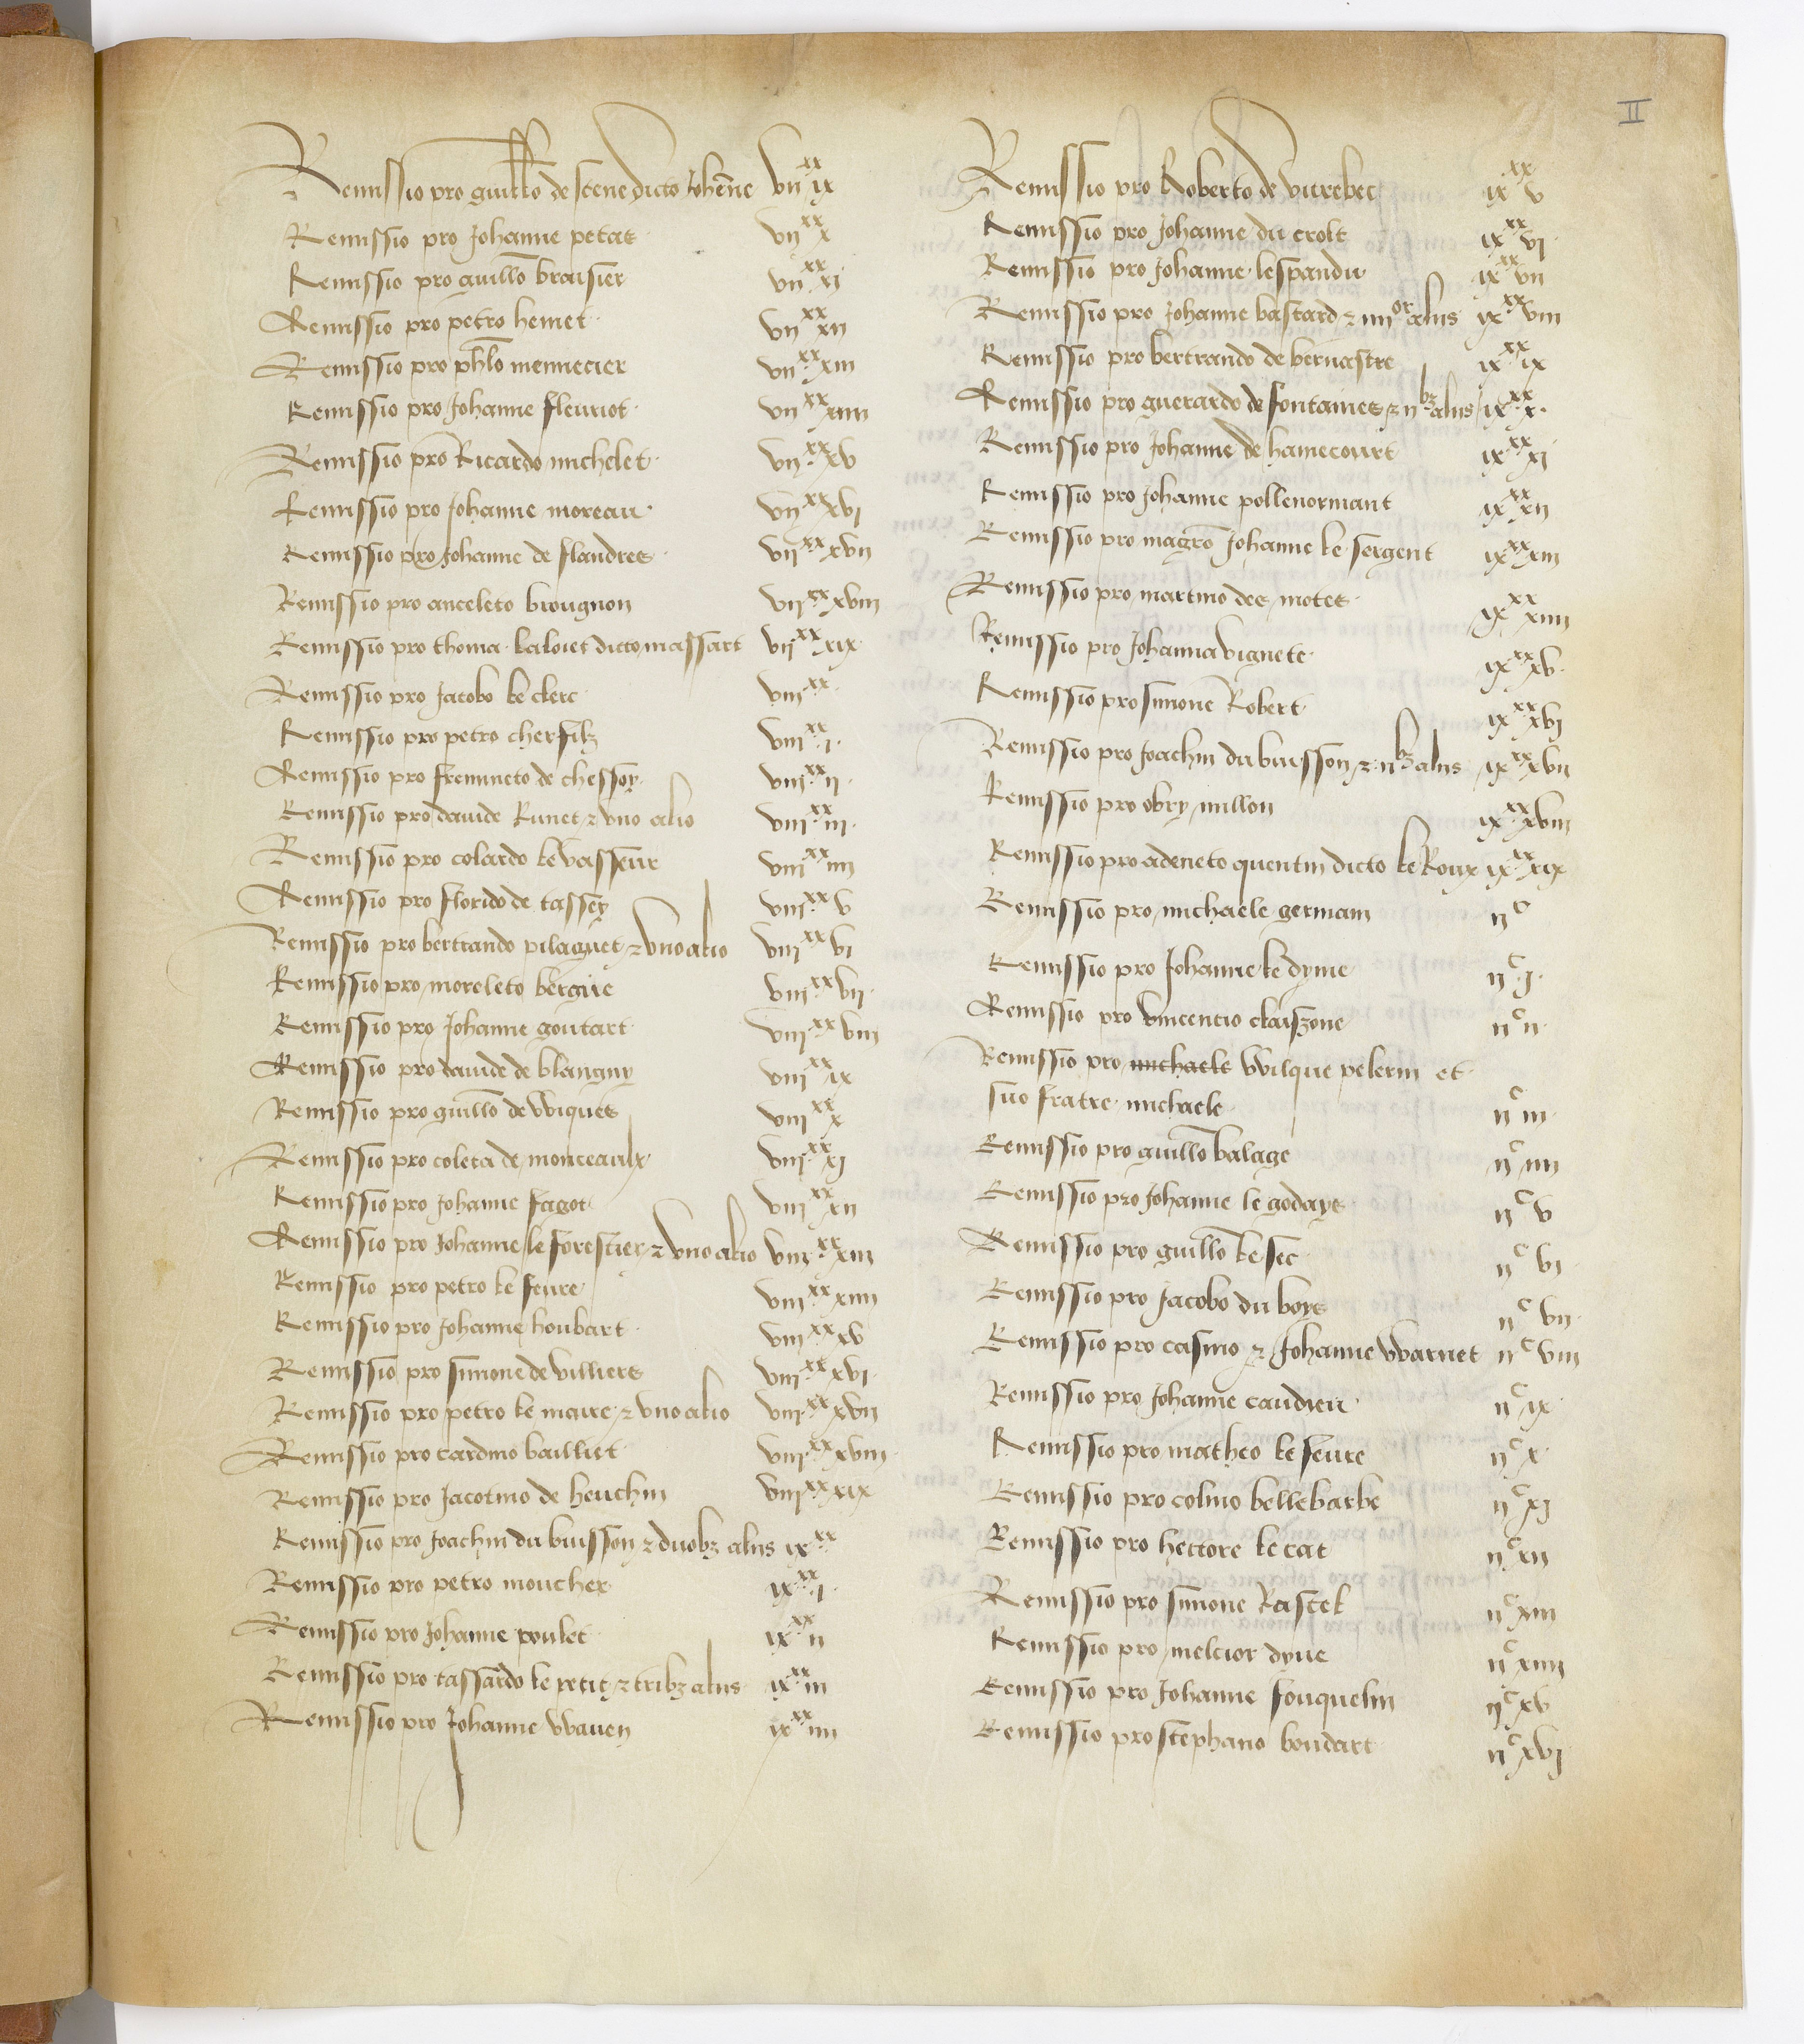 II
Remissio pro guillo de stene dicto Johenne vii xx ix
Remissio pro Johanne petat vii xx x
Remissio pro guillo braisier vii xx xi
Remissio pro petro hemet vii xx xii
Remissio pro phlo mennecier vii xx xiii
Remissio pro Johanne fleuriot vii xx xiiii
Remissio pro Ricardo michelet vii xx xv
Remissio pro Johanne moreau vii xx xvi
Remissio pro Johanne de flandres vii xx xvii
Remissio pro anceleto brougnon vii xx xviii
Remissio pro thoma laloiet dicto massart vii xx xix
Remissio pro Jacobo le clerc viii xx
Remissio pro petro cherfilz viii xx i
Remissio pro fremineto de chessoy viii xx ii
Remissio pro davide Runet et vno alio viii xx iii
Remissio pro colardo le vasseur viii xx iiii
Remissio pro florido de tassey viii xx v
Remissio pro bertrando pilaguet et vno alio viii xx vi
Remissio pro moreleto bergue viii xx vii
Remissio pro Johanne goutart viii xx viii
Remissio pro davide de blangny viii xx ix
Remissio pro guillo de wiques viii xx x
Remissio pro coleta de monceaulx viii xx xi
Remissio pro Johanne fagot viii xx xii
Remissio pro Johanne le forestier et vno alio viii xx xiii
Remissio pro petro le feure viii xx xiiii
Remissio pro Johanne houbart viii xx xv
Remissio pro simone de villiers viii xx xvi
Remissio pro petro le maire et vno alio viii xx xvii
Remissio pro cardino bailliet viii xx xviii
Remissio pro Jacotino de heuchin viii xx xix
Remissio pro Joachin du buisson et duobz aliis ix xx
Remissio pro petro moucher ix xx i
Remissio pro Johanne poulet ix xx ii
Remissio pro tassardo le petit et tribz aliis ix xx iii
Remissio pro Johanne waven ix xx iiii
Remissio pro Roberto de vurebec ix xx v
Remissio pro Johanne du crolt ix xx vi
Remissio pro Johanne lespandu ix xx vii
Remissio pro Johanne bastard et iiii or aliis ix xx viii
Remissio pro bertrando de bernastre ix xx ix
Remissio pro guerardo de fontaines et ii bz aliis ix xx x
Remissio pro Johanne de hamecourt ix xx xi
Remissio pro Johanne pollenormant ix xx xii
Remissio pro magro Johanne le sergent ix xx xiii
Remissio pro martino des motes ix xx xiiii
Remissio pro Johanna vignete ix xx xv
Remissio pro simone Robert ix xx xvi
Remissio pro Joachin du buisson et ii bz aliis ix xx xvii
Remissio pro obry millon ix xx xviii
Remissio pro adeneto quentin dicto le Roux ix xx xix
Remissio pro michaele germain ii c
Remissio pro Johanne le dyme ii c j
Remissio pro vincencio claiszone ii c ii
Remissio pro michaele wilque pelerin et
suo fratre michaele ii c iii
Remissio pro guillo balage ii c iiii
Remissio pro Johanne le godays ii c v
Remissio pro guillo le sec ii c vi
Remissio pro Jacobo du boys ii c vii
Remissio pro casino et Johanne warnet ii c viii
Remissio pro Johanne caudieu ii c ix
Remissio pro matheo le feure ii c x
Remissio pro colino bellebarbe ii c xi
Remissio pro hectore le cat ii c xii
Remissio pro simone Rastel ii c xiii
Remissio pro melcior dyve ii c xiiii
Remissio pro Johanne fouquelin ii c xv
Remissio pro stephano boudart ii c xvi